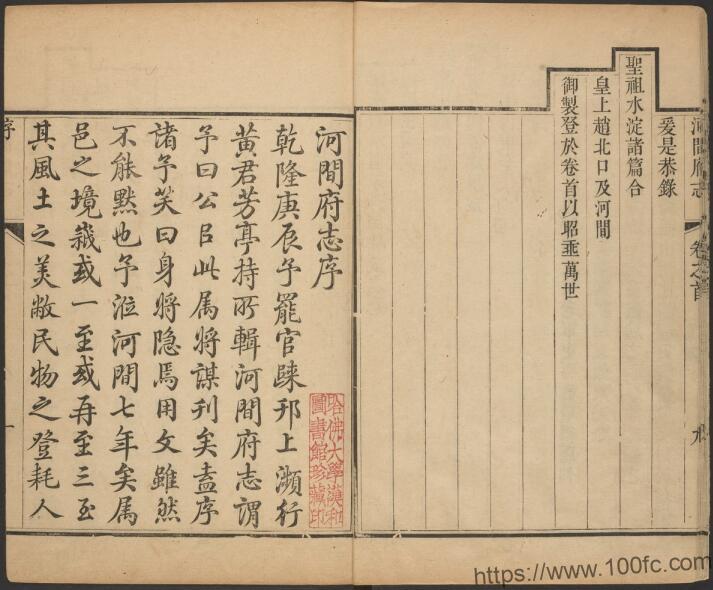 河間府志
卷之首
九
爰是恭錄
聖祖水淀諸篇合
皇上趙北口及河間
御製登於卷首以昭垂萬世
河間府志序
乾隆庚辰予罷官歸邗上瀕行
黃君芳亭持所輯河間府志謂
予曰公曰此属將謀刋矣盍序
諸予笑曰身將隐焉用文雖然
不能黙也予涖河間七年矣属
邑之境嵗或一至或再至三至
其風土之美敝民物之登耗人
序
一
哈佛大學漢和
圖書館珍藏印
https://www.100fc.com